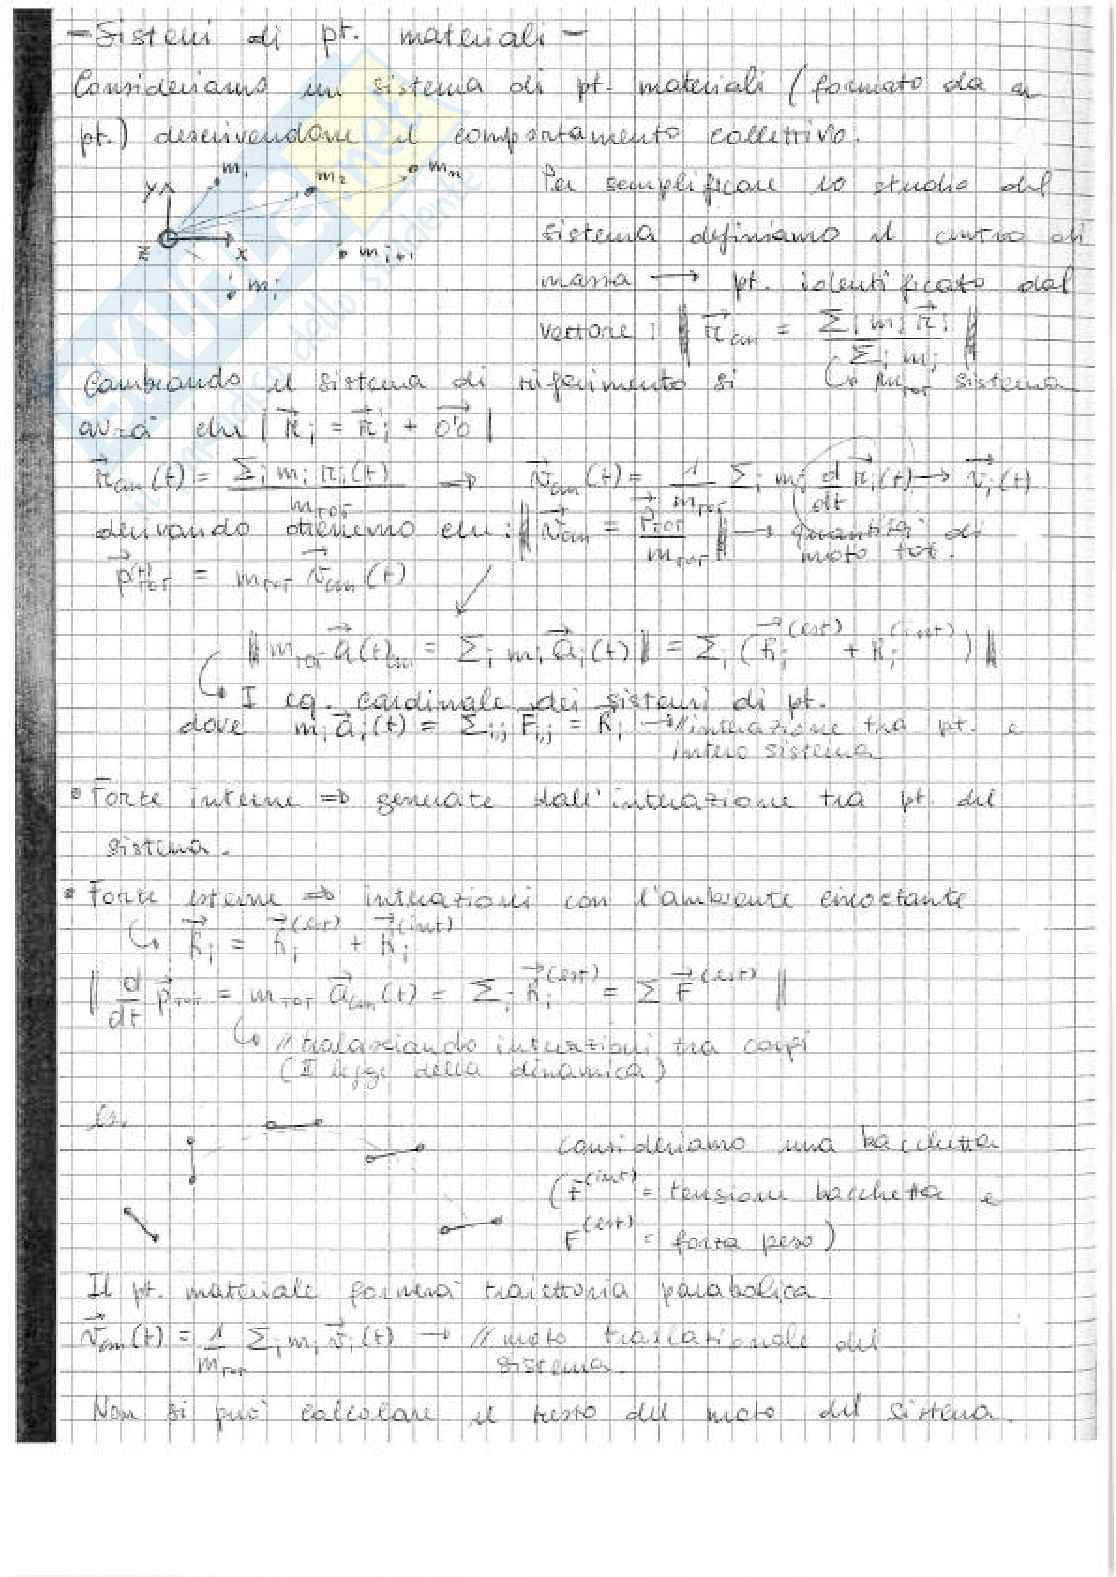 - Sistemi di pt. materiali -
Consideriamo un sistema di pt. materiali (formato da n
pt.) descrivendone il comportamento collettivo.
y m₁ m₂ mₙ
z x mᵢ₊₁
mᵢ
Per semplificare lo studio del
sistema definiamo il centro di
massa → pt. identificato dal
vettore : || r⃗cm = Σᵢ mᵢ r⃗ᵢ / Σᵢ mᵢ ||
↳ mTOT sistema
Cambiando il sistema di riferimento si
avrà che | r⃗ᵢ = r⃗ᵢ + O'O⃗ |
r⃗cm(t) = Σᵢ mᵢ rᵢ(t) / mTOT ⇒ v⃗cm(t) = 1/mTOT Σᵢ mᵢ d/dt r⃗ᵢ(t) → v⃗ᵢ(t)
derivando otteniamo che : || v⃗cm = P⃗TOT / mTOT || → quantità di
moto tot.
p⃗(t)TOT = mTOT v⃗cm(t)
|| mTOT a⃗(t)cm = Σᵢ mᵢ a⃗ᵢ(t) || = Σᵢ (R⃗ᵢ(est) + Rᵢ(int)) ||
↳ I eq. cardinale dei sistemi di pt.
dove mᵢ a⃗ᵢ(t) = Σᵢ,ⱼ F⃗ᵢ,ⱼ = R⃗ᵢ → // interazione tra pt. e
intero sistema
• Forze interne ⇒ generate dall'interazione tra pt. del
sistema.
• Forze esterne ⇒ interazioni con l'ambiente circostante
↳ R⃗ᵢ = R⃗ᵢ(est) + R⃗ᵢ(int)
|| d/dt p⃗TOT = mTOT a⃗cm(t) = Σᵢ R⃗ᵢ(est) = Σ F⃗(est) ||
↳ // tralasciando interazioni tra corpi
(II legge della dinamica)
es.
consideriamo una bacchetta
(F⃗(int) = tensione bacchetta e
F(est) = forza peso)
Il pt. materiale formerà traiettoria parabolica
v⃗cm(t) = 1/mTOT Σᵢ mᵢ v⃗ᵢ(t) → // moto traslazionale del
sistema.
Non si può calcolare il resto del moto del sistema.
SKUOLA.net
dello studente